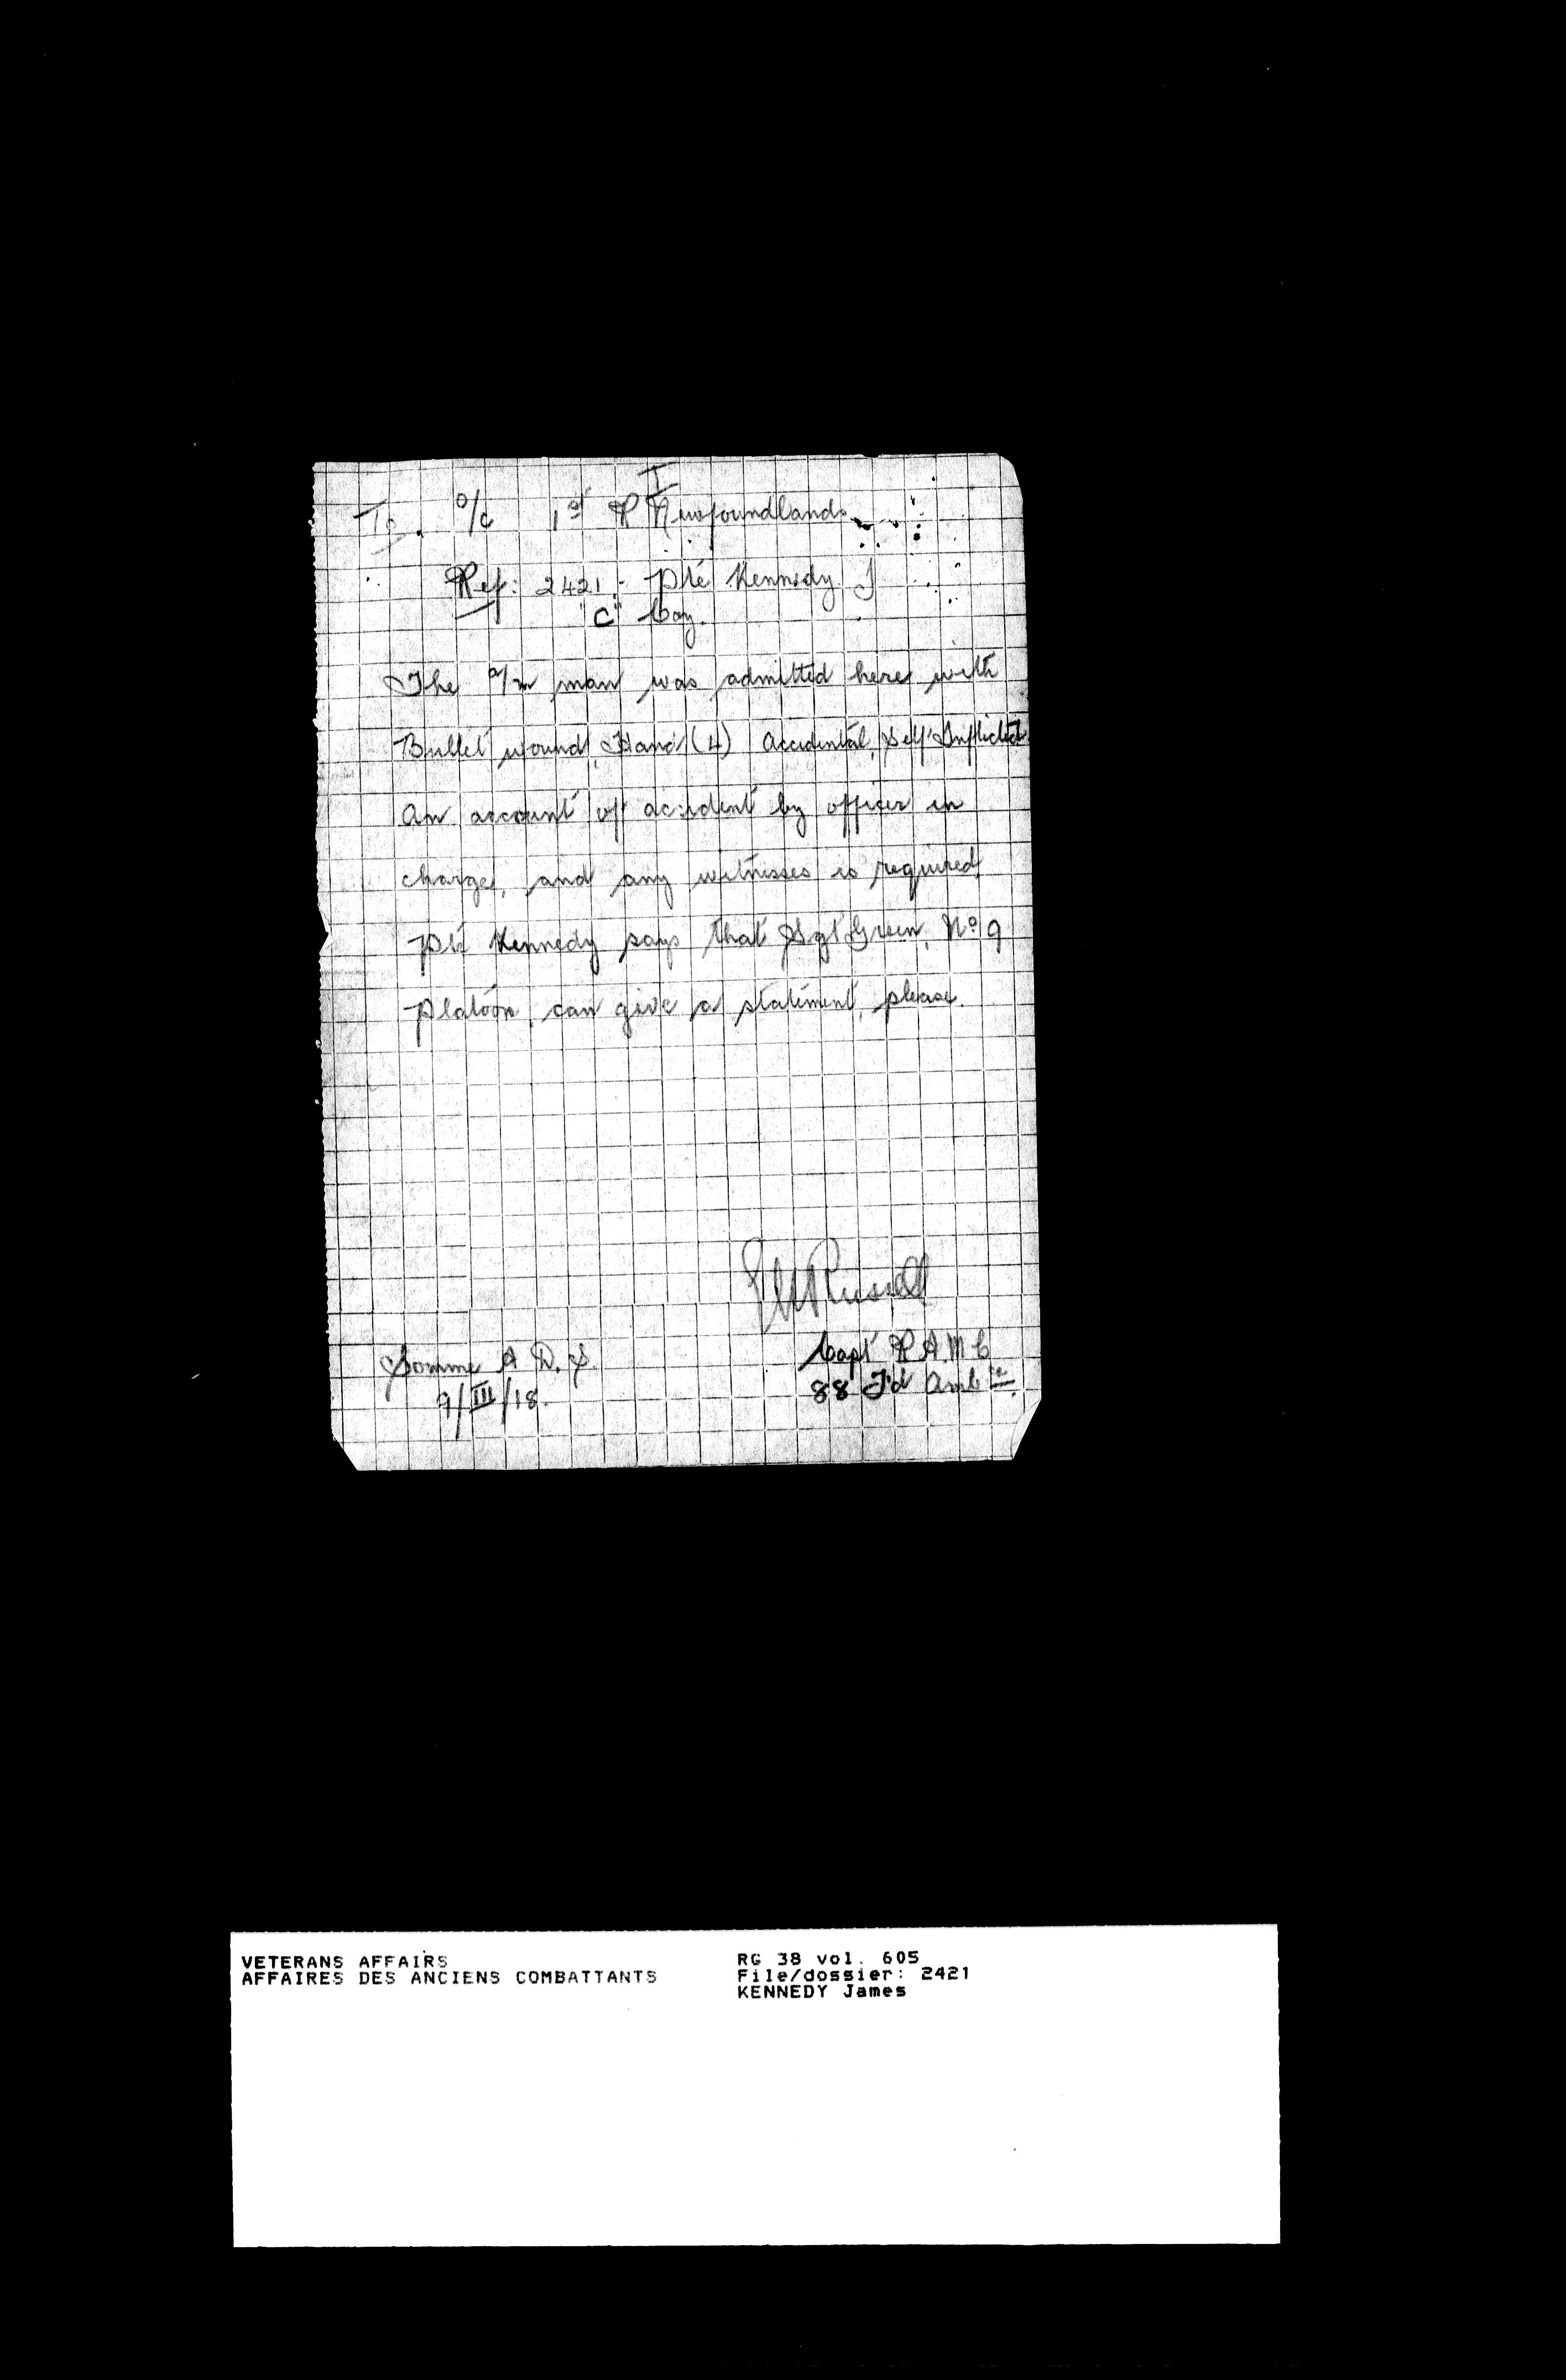 I
To. O/C 1st R Newfoundlands.
Ref: 2421 - Pte Kennedy J
"C" Coy.
The a/m man was admitted here with
Bullet wound, Hand (L) Accidental, Self Inflicted.
An account of accident by officer in
charge, and any witnesses is required.
Pte Kennedy says that Sgt Green, No 9
Platoon, can give a statement, please.
Russell
Capt R.A.M.C
88 F'd Ambce.
Somme A.D.S.
9/III/18.
VETERANS AFFAIRS
AFFAIRES DES ANCIENS COMBATTANTS
RG 38 vol. 605
File/dossier: 2421
KENNEDY James